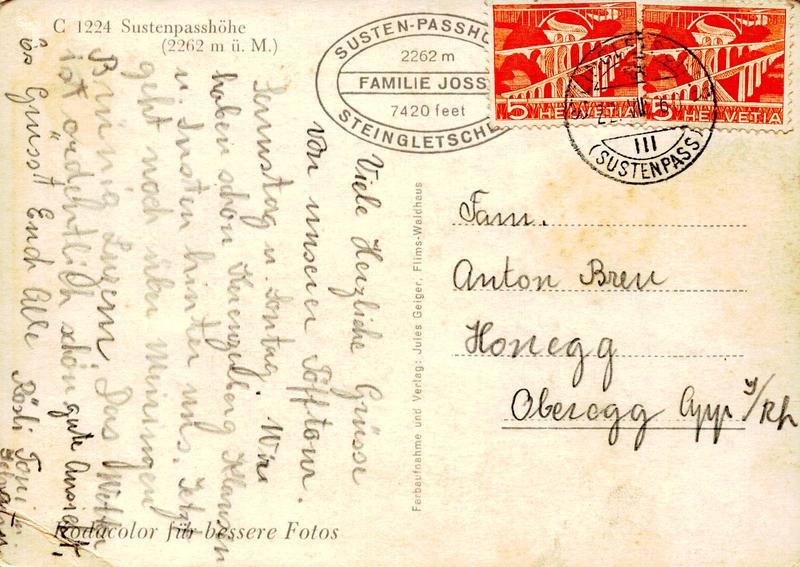 C 1224 Sustenpasshöhe
(2262 m ü. M.)
SUSTEN-PASSHÖ
2262 m
FAMILIE JOSS
7420 feet
STEINGLETSCHE
5 HELVETIA
5 HELVETIA
III
(SUSTENPASS)
Viele Herzliche Grüsse
von unserer Töfftour.
Samstag u. Sontag. Wir
haben schon Kerenzerberg Klausen
u. Susten hinter uns. Jetzt
geht noch über Meiringen
Brünig Luzern. Das Wetter
ist ordentlich schön gute Aussicht,
Es Grüsst Euch Alle
Rösli Toni
Farbaufnahme und Verlag: Jules Geiger, Flims-Waldhaus
Fam.
Anton Breu
Honegg
Oberegg App I/Rh
Kodacolor für bessere Fotos